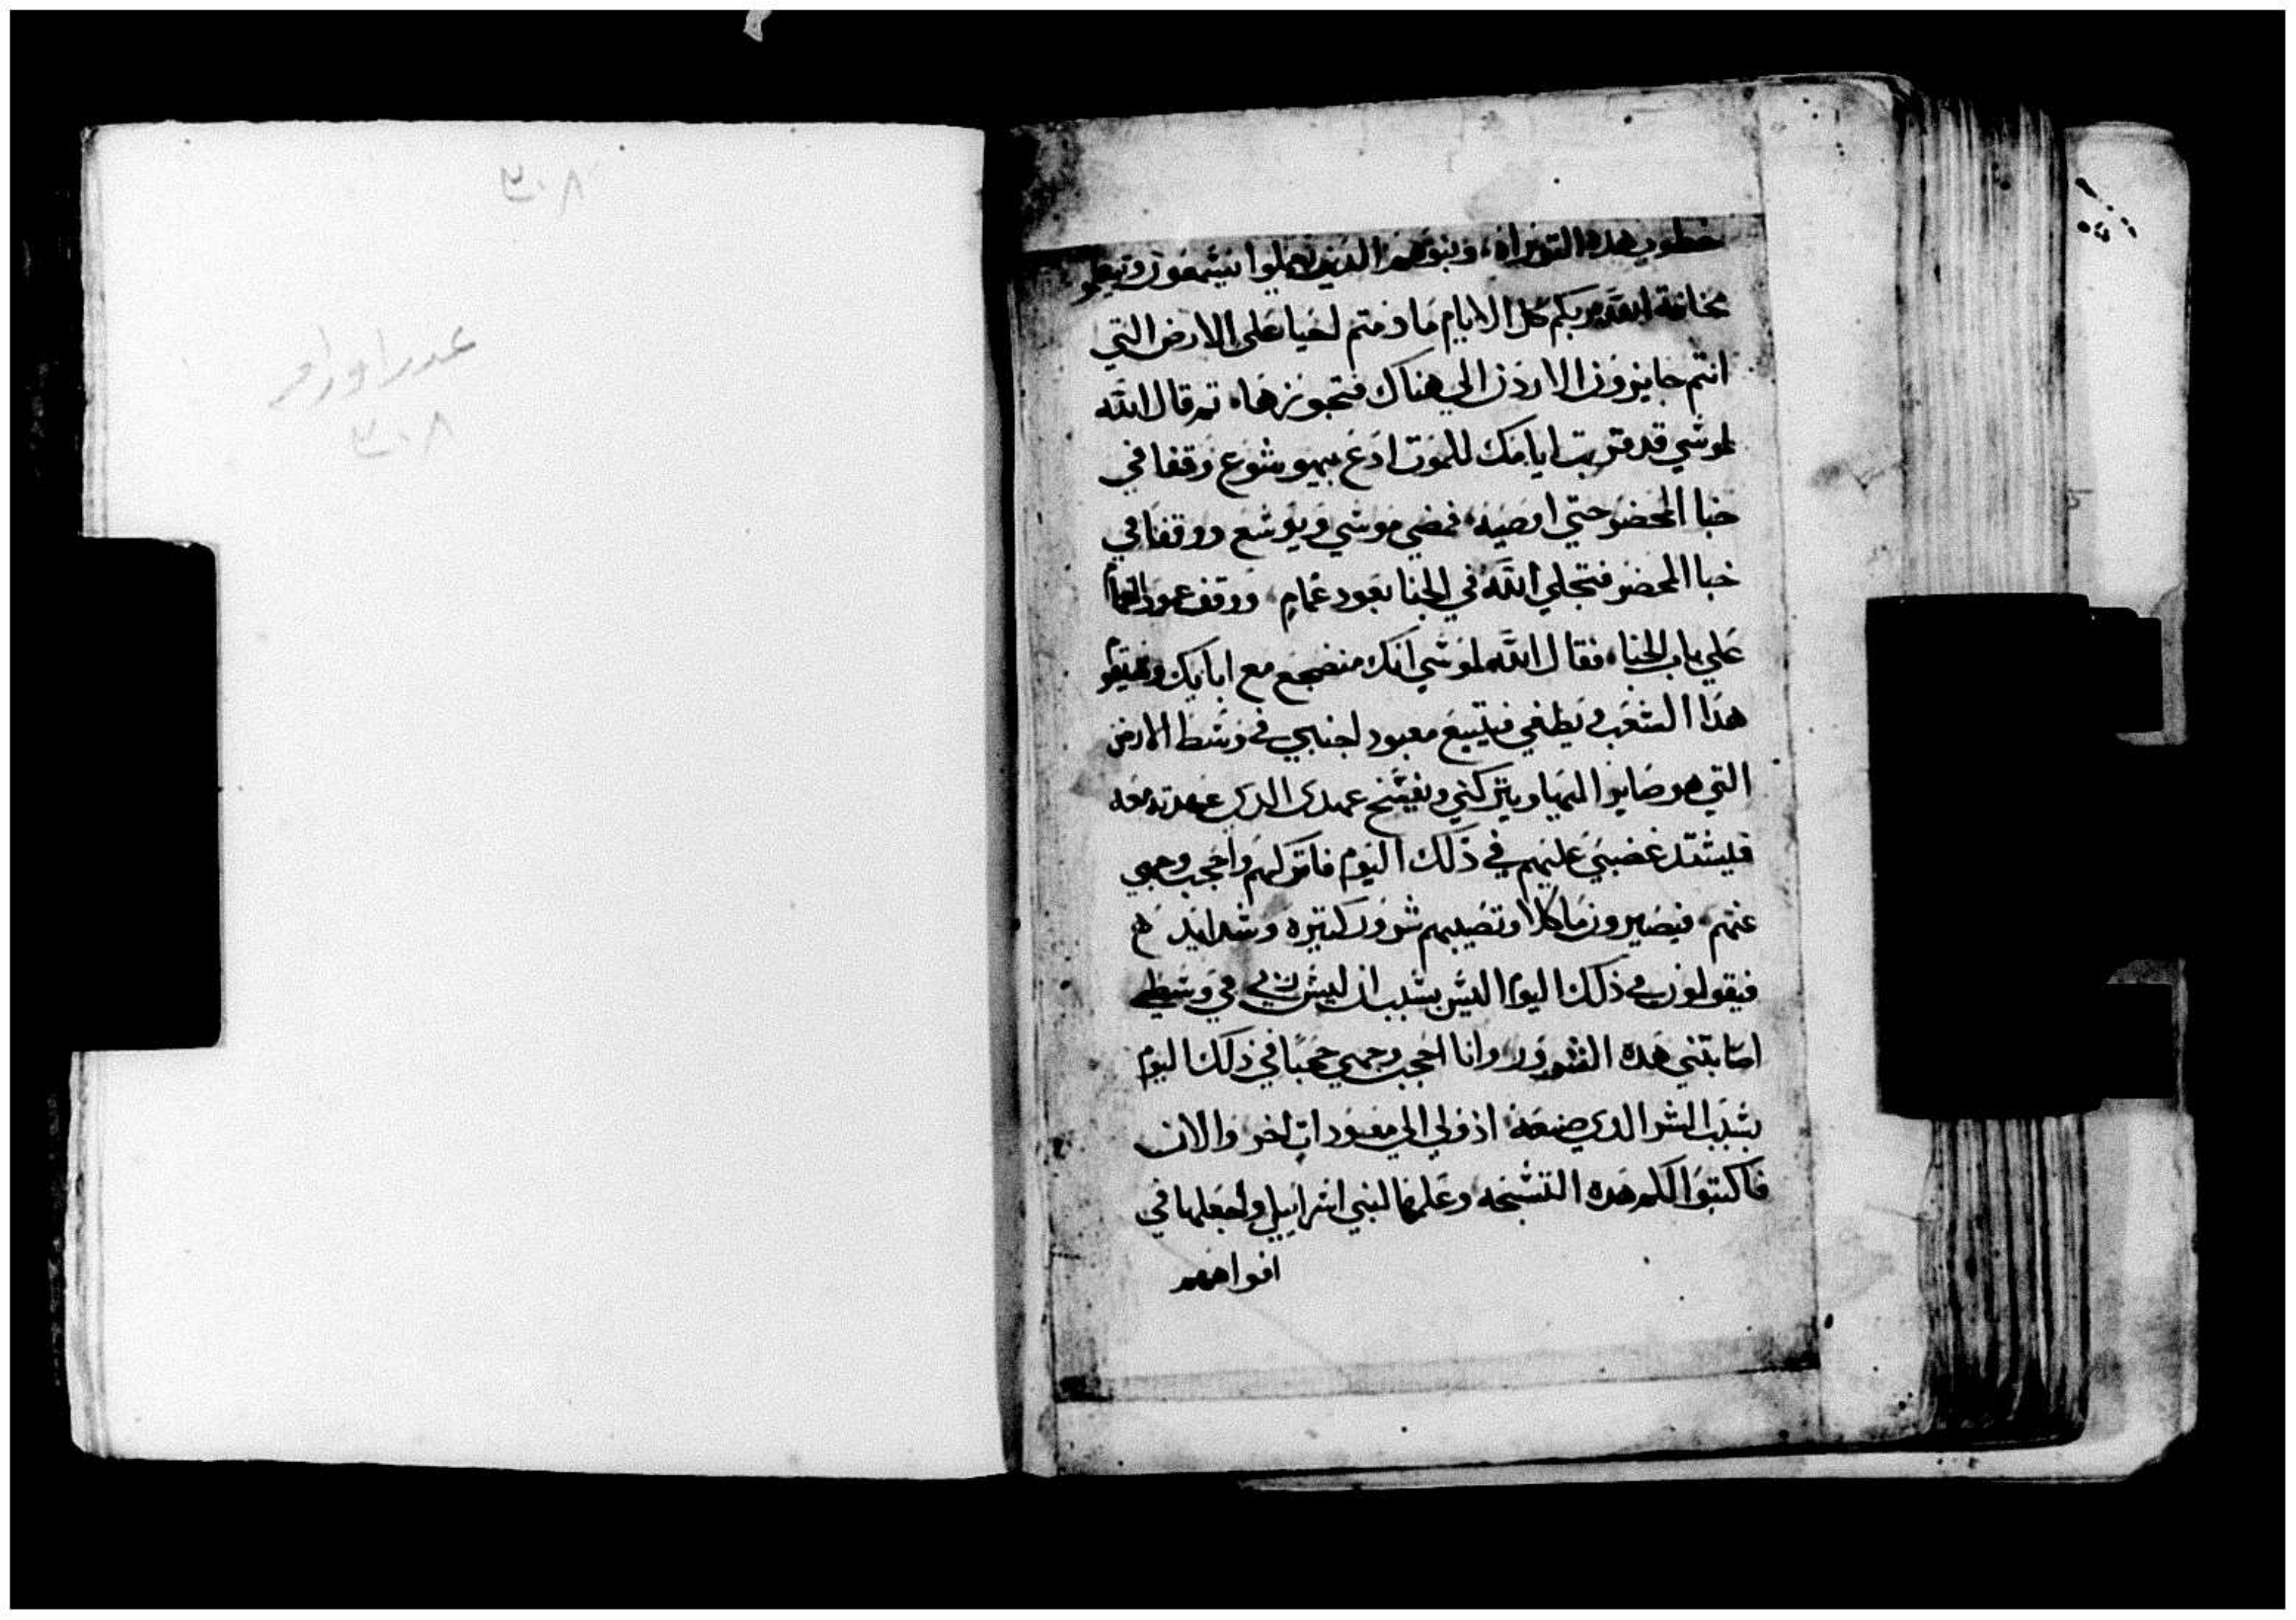 ٣٠٨
عدد اوراق
٣٠٨
خطوب هده التوراه، وبنوهم الدين يسمعون
مخافة الله ربكم كل الايام ما دمتم احيا على الارض التي
انتم جايزون الاردن الي هناك فتحوزهاه تم قال الله
لموشي قد قربت ايامك للموت ادع بيهوشوع وقفا في
خبا المحضر حتي اوصيه، فمضي موشي ويوشع ووقفا في
خبا المحضر فتجلي الله في الخبا بعمود غمام، ووقف عمود الغمام
علي باب الخبا، فقال الله لموشي انك منضجع مع ابايك
هدا الشعب ويطغي فيتبع معبود اجنبي في وسط الارض
التي هو صاير اليها ويتركني ويفسخ عهدى الدى عهدته معه
فليشتد غضبي عليهم في ذلك اليوم فاتركهم واحجب وجهي
عنهم، فيصيرون ماكلا وتصيبهم شرور كتيره وشدايد
فيقولون في ذلك اليوم اليس بسبب ان ليس في وسطي
اصابتني هده الشرور وانا احجب وجهي حجبا في ذلك اليوم
بسبب الشر الدي صنعه اذ ولي الي معبودات اخر والان
فاكتبوا لكم هده التسبحه وعلمها لبني اسراييل واجعلها في
افواههم